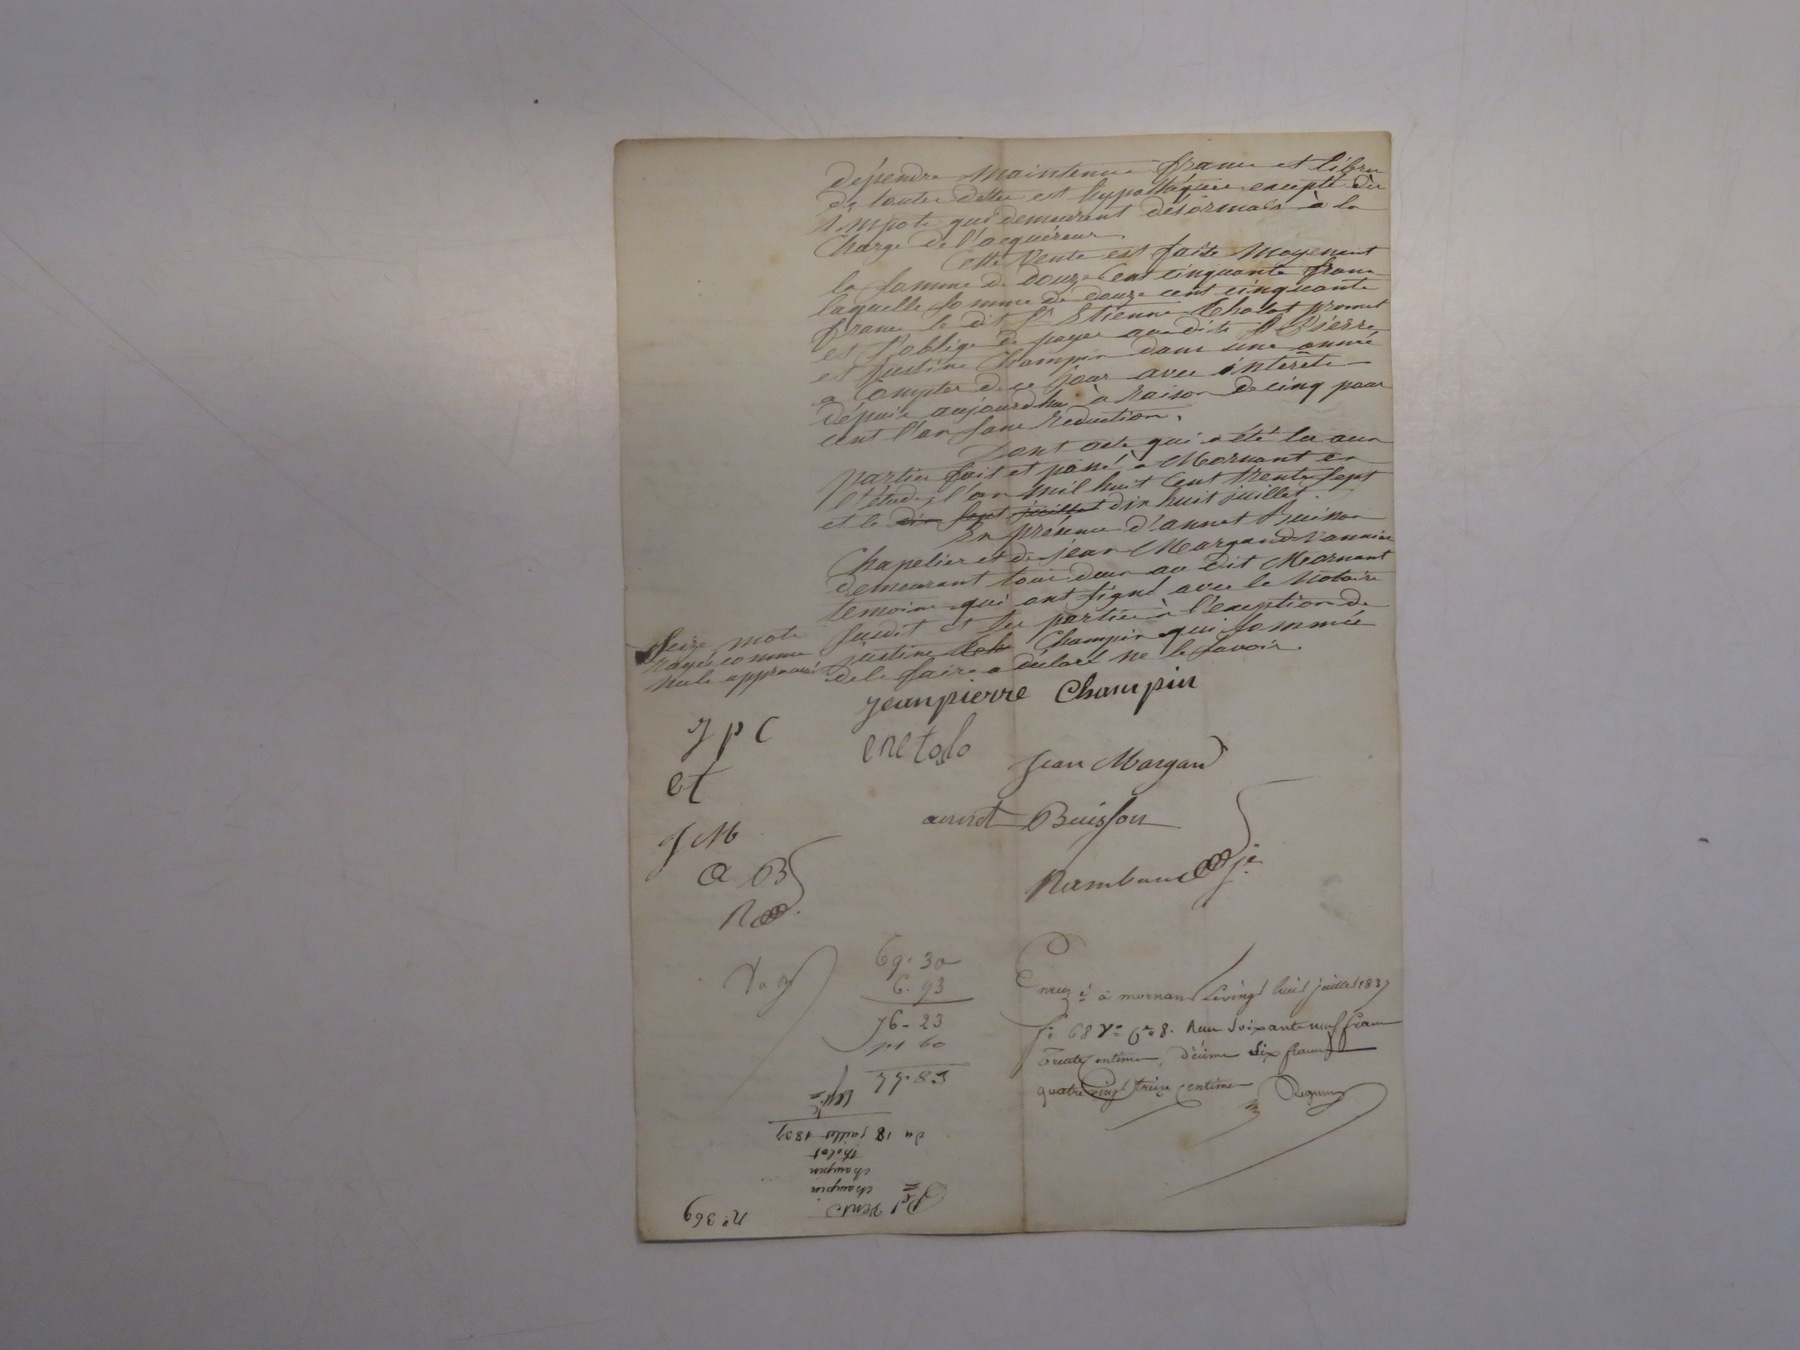 dépendre maintenue franc et libre
de toutes dettes et hypothèques excepté des
impots qui demeurent désormais à la
charge de l'acquéreur.
Cette Vente est faite moyenent
la somme de douze Cent cinquante franc
laquelle somme de douze cent cinquante
franc le dit Sr Etienne Tholot promet
et s'oblige de payer au dits Sr Pierre
et justine Champin dans une année
a Compter de ce jour avec intérêts
dépuis aujourdhui à raison de cinq pour
cent l'an sans réduction.
Dont acte qui a été lu aux
parties fait et passé à Mornant en
l'étude l'an mil huit Cent trente sept
et le dix sept juillet dix huit juillet.
En présence d'annet Buisson
Chapelier et de jean Margand
demeurant tous deux au dit Mornant
temoins qui ont signé avec le Notaire
susdit et les parties à l'exception de
justine Champin qui sommée
de le faire a déclaré ne le savoir.
Seize mots
rayés comme
nuls approuvé
jeanpierre Champin
J p C
et
Jean Margand
J M
annet Buisson
a B
R
69. 30
6. 93
76 - 23
1 60
77. 83
Enreg. à mornant le vingt huit juillet 1837
fo 68 Vo Ce 8. Reçu soixante neuf francs
trente centimes, décime six francs
quatre vingt treize centimes
du 18 juillet 1837
tholot
champin
champin
vente
no 369